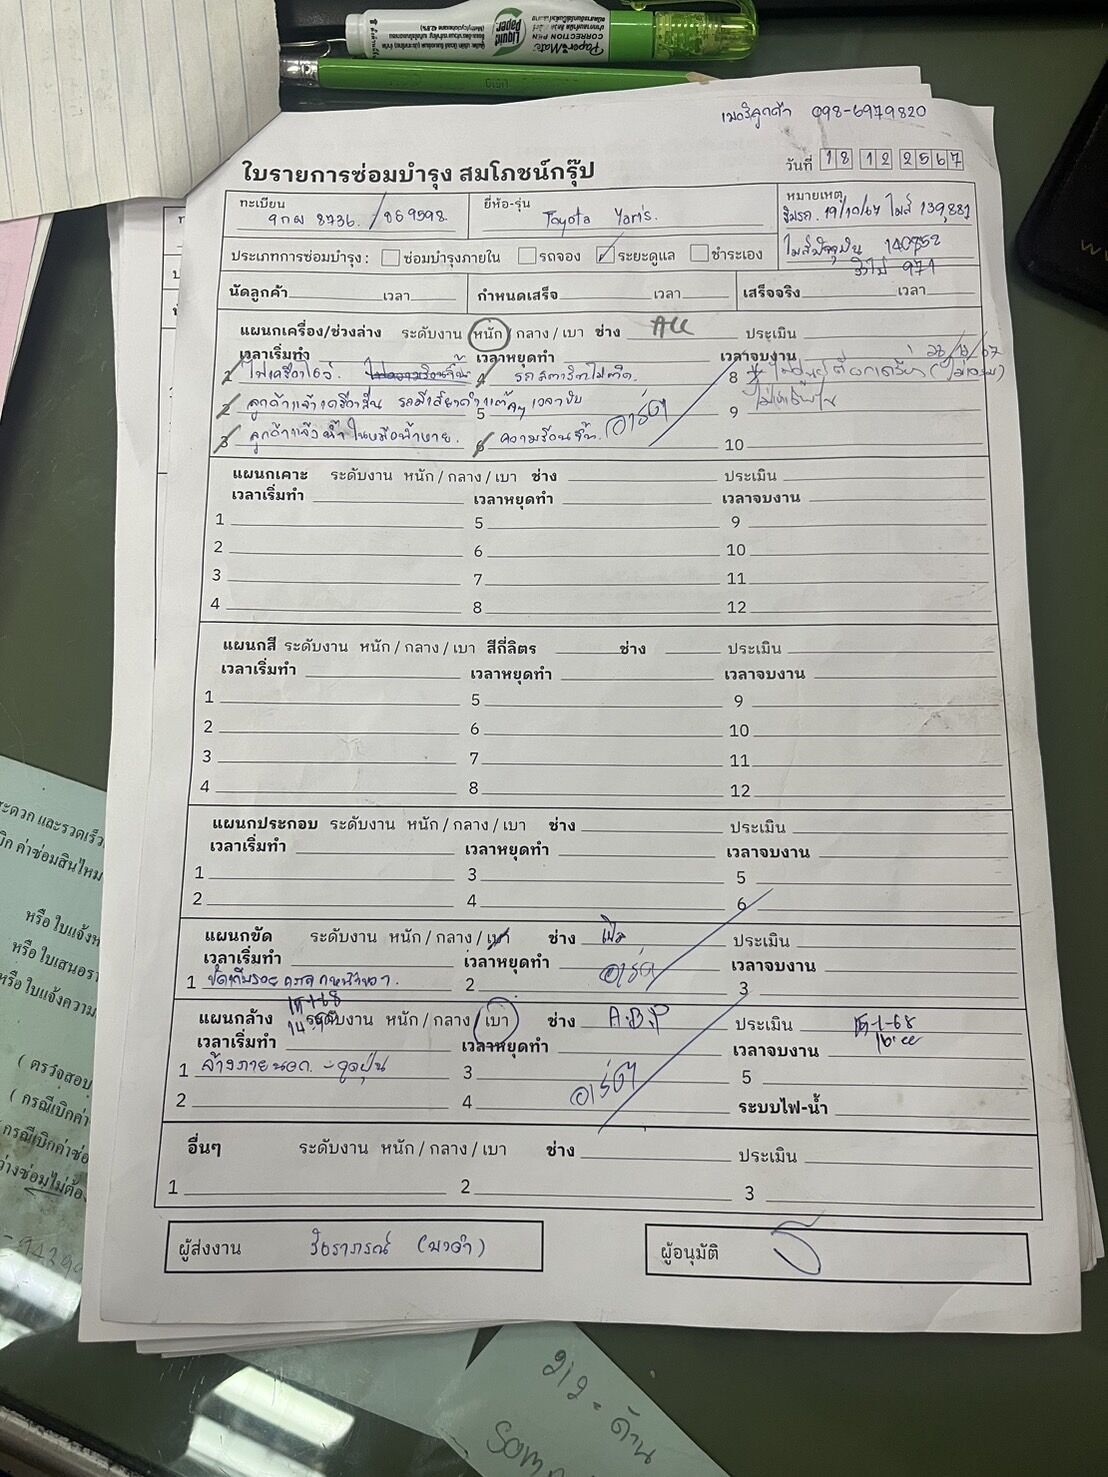 Liquid Paper
Paper Mate
CORRECTION PEN
เบอร์ลูกค้า 098-6979820
ใบรายการซ่อมบำรุง สมโภชน์กรุ๊ป
วันที่ 18 12 2567
ทะเบียน
8736. /069598.
ยี่ห้อ-รุ่น Toyota Yaris.
หมายเหตุ
รับรถ. 19/10/67 ไมล์ 139,881
ไมล์ปัจจุบัน 140852
วิ่งไป 971
ประเภทการซ่อมบำรุง : ซ่อมบำรุงภายใน รถจอง ระยะดูแล ชำระเอง
นัดลูกค้า เวลา กำหนดเสร็จ เวลา เสร็จจริง เวลา
แผนกเครื่อง/ช่วงล่าง ระดับงาน หนัก / กลาง / เบา ช่าง ประเมิน
เวลาเริ่มทำ เวลาหยุดทำ เวลาจบงาน
1 ไฟเครื่องโชว์ 4 รถสตาร์ทไม่ติด. 8
2 ลูกค้าแจ้งเครื่องสั่น รถมีเสียง เวลาขับ 5 9
3 ลูกค้าแจ้งน้ำในหม้อน้ำหาย. 6 ความร้อนขึ้น. อาร์ต 10
แผนกเคาะ ระดับงาน หนัก / กลาง / เบา ช่าง ประเมิน
เวลาเริ่มทำ เวลาหยุดทำ เวลาจบงาน
1 5 9
2 6 10
3 7 11
4 8 12
แผนกสี ระดับงาน หนัก / กลาง / เบา สีกี่ลิตร ช่าง ประเมิน
เวลาเริ่มทำ เวลาหยุดทำ เวลาจบงาน
1 5 9
2 6 10
3 7 11
4 8 12
แผนกประกอบ ระดับงาน หนัก / กลาง / เบา ช่าง ประเมิน
เวลาเริ่มทำ เวลาหยุดทำ เวลาจบงาน
1 3 5
2 4 6
แผนกขัด ระดับงาน หนัก / กลาง / เบา ช่าง ประเมิน
เวลาเริ่มทำ เวลาหยุดทำ เวลาจบงาน
1 2 อาร์ต 3
แผนกล้าง ระดับงาน หนัก / กลาง / เบา ช่าง A.B.P ประเมิน 15-1-68
เวลาเริ่มทำ เวลาหยุดทำ เวลาจบงาน
1 ล้างภายนอก - ดูดฝุ่น 3 อาร์ต 5
2 4 ระบบไฟ-น้ำ
อื่นๆ ระดับงาน หนัก / กลาง / เบา ช่าง ประเมิน
1 2 3
ผู้ส่งงาน
ผู้อนุมัติ
สะดวก และรวดเร็ว
บิก ค่าซ่อมสินไหม
หรือ ใบแจ้งห
หรือ ใบเสนอรา
หรือ ใบแจ้งความ
( ตรวจสอบ
( กรณีเบิกค่า
กรณีเบิกค่าซ่อ
ว่างซ่อมไม่ต้อ
212 - ด้าน